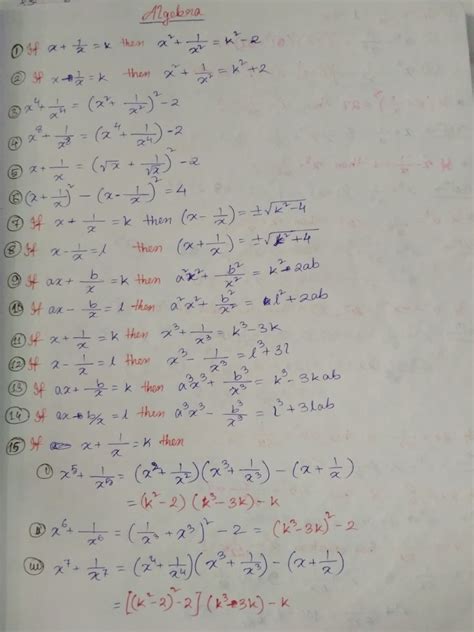 Algebra
① If x + 1/x = k then x² + 1/x² = k² - 2
② If x - 1/x = k then x² + 1/x² = k² + 2
③ x⁴ + 1/x⁴ = (x² + 1/x²)² - 2
④ x⁸ + 1/x⁸ = (x⁴ + 1/x⁴) - 2
⑤ x + 1/x = (√x + 1/√x)² - 2
⑥ (x + 1/x)² - (x - 1/x)² = 4
⑦ If x + 1/x = k then (x - 1/x) = ±√k² - 4
⑧ If x - 1/x = l then (x + 1/x) = ±√k² + 4
⑨ If ax + b/x = k then a²x² + b²/x² = k² - 2ab
⑩ If ax - b/x = l then a²x² + b²/x² = l² + 2ab
⑪ If x + 1/x = k then x³ + 1/x³ = k³ - 3k
⑫ If x - 1/x = l then x³ - 1/x³ = l³ + 3l
⑬ If ax + b/x = k then a³x³ + b³/x³ = k³ - 3kab
⑭ If ax - b/x = l then a³x³ - b³/x³ = l³ + 3lab
⑮ If x + 1/x = k then
ⓘ x⁵ + 1/x⁵ = (x² + 1/x²)(x³ + 1/x³) - (x + 1/x)
= (k² - 2) (k³ - 3k) - k
ii x⁶ + 1/x⁶ = (1/x³ + x³)² - 2 = (k³ - 3k)² - 2
iii x⁷ + 1/x⁷ = (x⁴ + 1/x⁴)(x³ + 1/x³) - (x + 1/x)
= [(k² - 2)² - 2] (k³ - 3k) - k